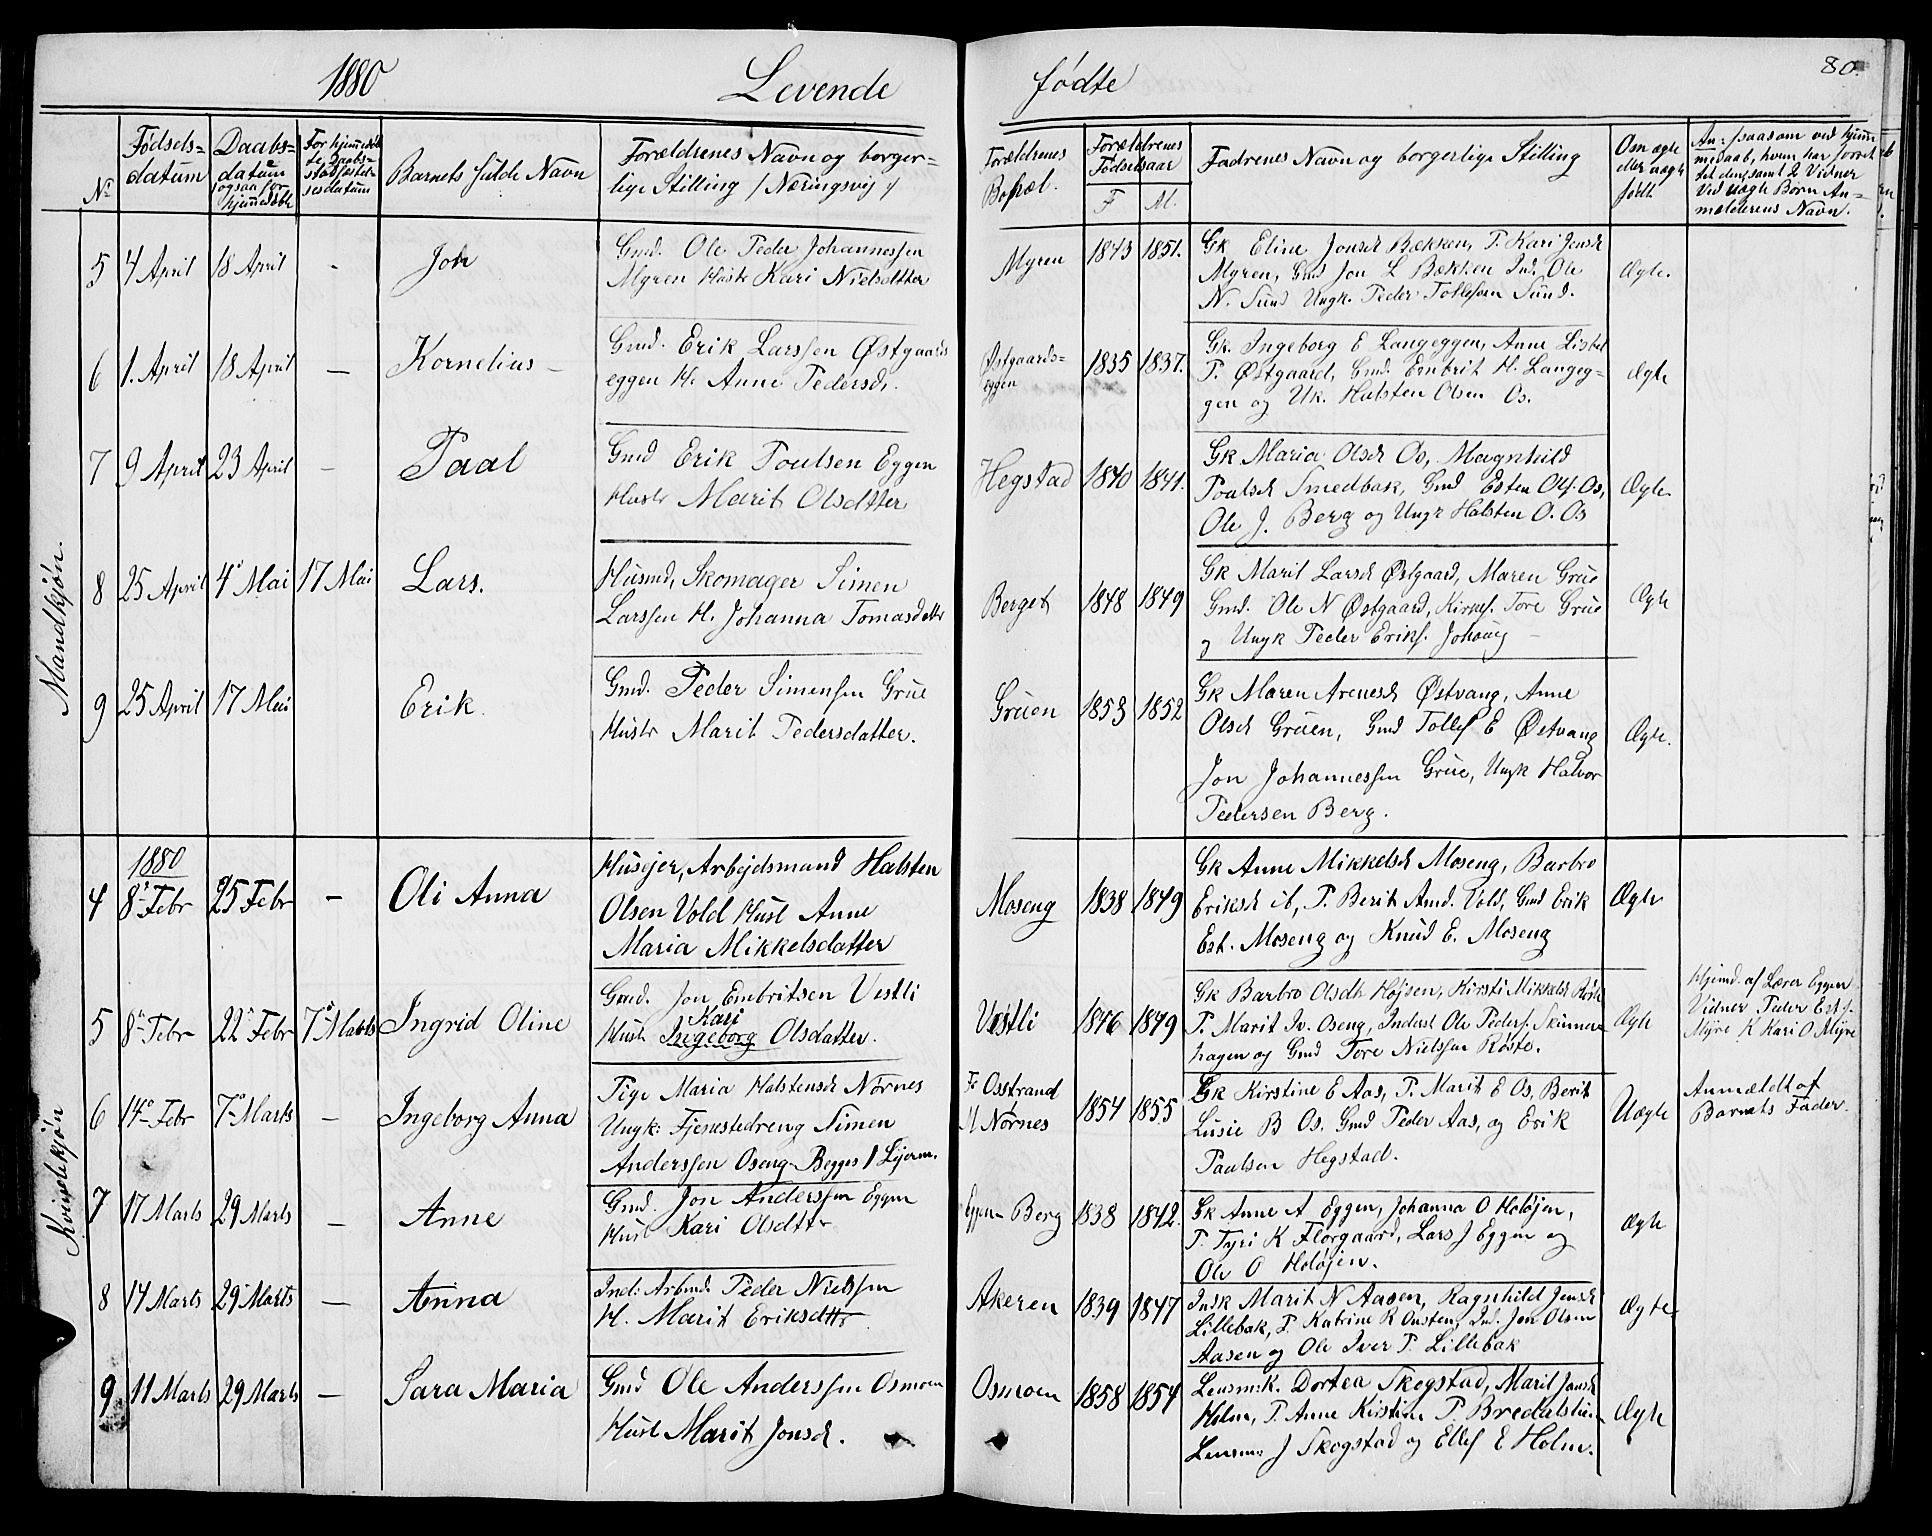 1880 Levende fødte 80.
No
Fødsels=
datum
Daabs-
datum
ogsaa for
hjemmedøbte
For hjemmedøb
te Daabs-
stadfæstel-
sesdatum
Barnets fulde Navn
Forældrenes Navn og borger=
lige Stilling /: Næringsvej :/
Forældrenes
Bopæl.
Forældrenes
Fødselsaar
F M.
Fadrenes Navn og borgerlige Stilling
Om ægte
eller uægte
født
An: saasom ved hjem-
medaab, hvem har forret
tet den, samt 2 Vidner
Ved uægte Børn An-
mælderens Navn.
Mandkjøn.
5 4 April 18 April - Joh
Gmd. Ole Peder Johannessen
Myren Hustr Kari Nielsdtter
Myren 1843 1851.
Gk Eline Jonsd Bækken, P. Kari Jensd
Myren, Gmd Jon L Bækken Ind. Ole
N. Sund Ungk. Peder Tollefsen Sund.
Ægte.
6 1. April 18 April - Kornelius -
Gmd. Erik Larssen Østgaards
eggen H. Anne Pedersdr.
Østgaards=
eggen
1835 1837.
Gk. Ingeborg E Langeggen, Anne Lisbet
P. Østgaard, Gmd. Embrit H. Langeg-
gen og Uk. Halsten Olsen Os.
Ægte
7 9 April 23 April - Paal
Gmd Erik Poulsen Eggen
Hustr Marit Olsdtter
Hegstad 1840 1841.
Gk Maria Olsd Os, Magnhild
Poalsd Smedbak, Gmd Esten Ols. Os,
Ole J. Berg og Ungk Halsten O. Os
Ægte
8 25 April 4 Mai 17 Mai Lars.
Husmd, Skomager Simen
Larssen H. Johanna Tomasdatter
Berget 1848 1849
Gk Marit Larsd Østgaard, Maren Grue
Gmd. Ole N Østgaard, Kirkes. Tore Grue
og Ungk Peder Eriks.
Ægte
9 25 April 17 Mai Erik.
Gmd. Peder Simensen Grue
Hustr Marit Pedersdatter.
Gruen 1853 1852
Gk Maren Arnesd Østvang, Anne
Olsd Gruen, Gmd Tollef E Østvang
Jon Johannessen Grue, Ungk Halvor
Pedersen Berg.
Ægte.
Kvindekjøn
1880
4 8 Febr 25 Febr - Oli Anna
Husejer, Arbejdsmand Halsten
Olsen Vold Hust Anne
Maria Mikkelsdatter
Moseng 1838 1849
Gk Anne Mikkelsd Moseng, Barbro
Eriksd ib, P. Berit Amd. Vold, Gmd Erik
Est. Moseng og Knud E. Moseng
Ægte
5 8 Febr 22 Febr 7 Marts Ingrid Oline
Gmd. Jon Embritsen Vestli
Kari
Hust Ingeborg Olsdatter.
Vestli 1846 1849
Gk Barbro Olsdtr Højsen, Kirsti Mikkelsd Røste
P. Marit Iv. Oseng, Inderst Ole Peders. Skinner
hagen og Gmd Tore Nielssen Røste.
Ægte
Hjemd. af Lærer Eggen
Vidner Peder Ests.
Myre K Kari O Myre
6 14 Febr 7 Marts - Ingeborg Anna
Pige Maria Halstensd Nørnes
Ungk: Tjenestedreng Simen
Anderssen Oseng. Begges 1 Lejerm.
F. Osstrand
M Nørnes
1854 1855
Gk Kirstine E Aas, P. Marit E Os, Berit
Lusie B Os. Gmd Peder Aas, og Erik
Paulsen Hegstad.
Uægte
Anmældt af
Barnets Fader.
7 17 Marts 29 Marts - Anne
Gmd. Jon Anderssen Eggen
Hust Kari Olsdttr
Eggen- Berg 1838 1842.
Gk Anne A Eggen, Johanna O Holøjen,
P. Tyri K Florgaard, Lars J Eggen og
Ole O Holøjen.
Ægte
8 14 Marts 29 Marts - Anna
Ind: Arbmd. Peder Nielssen
H. Marit Eriksdttr
Akeren 1839 1847
Indk Marit N Aasen, Ragnhild Jensd
Lillebak, P. Katrine R Onsten, Ind. Jon Olsen
Aasen og Ole Iver P. Lillebak
Ægte
9 11 Marts 29 Marts - Sara Maria
Gmd Ole Anderssen Osmoen
Hust Marit Jonsd.
Osmoen 1858 1854
Lensmk. Dortea Skogstad, Marit Jonsd
Holm, P. Anne Kirstine P. Bredalslien
Lensm. J Skogstad og Ellef E Holm.
Ægte